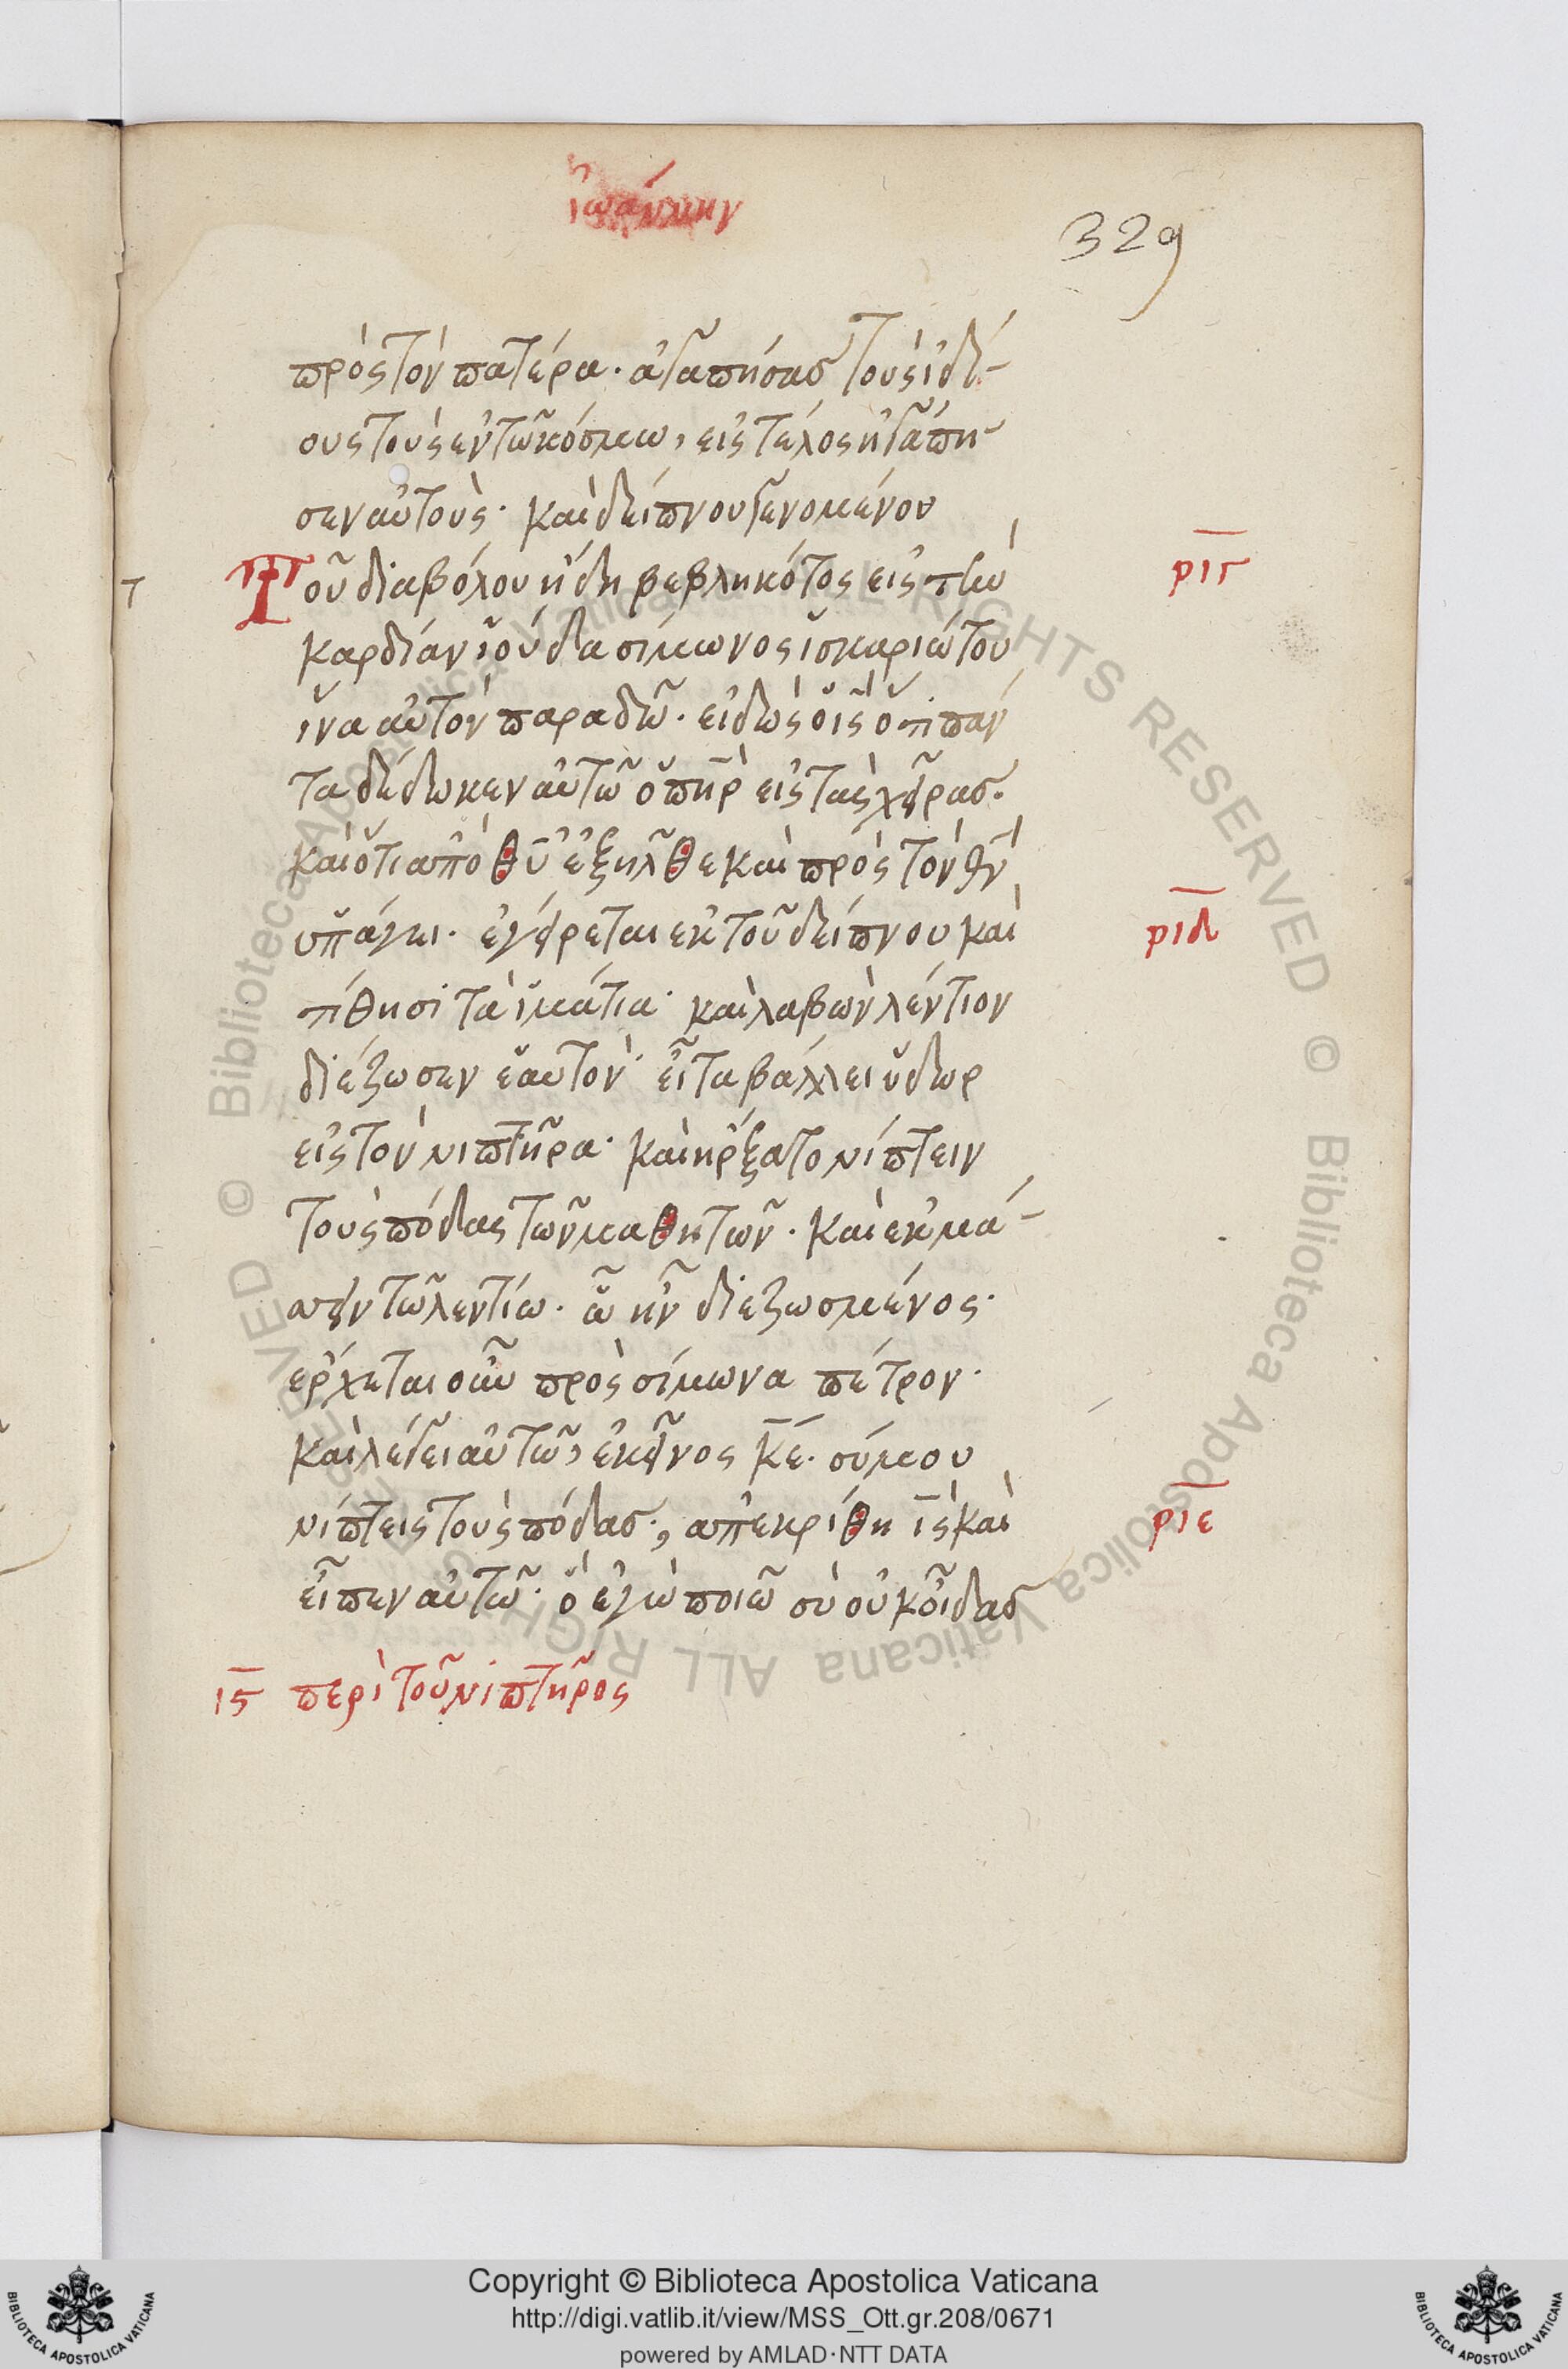 ἰωάννην
329
πρὸς τὸν πατέρα· ἀγαπήσασ τοὺς ἰδί-
ους τοὺς ἐν τῶ κόσμω, εἰς τέλος ἠγάπη-
σεν αὐτοὺς· καὶ δείπνου γενομένου
Τοῦ διαβόλου ἤδη βεβληκότος εἰς τὴν
ριγ
καρδίαν ἰούδα σίμωνος ἰσκαριώτου
ἵνα αὐτὸν παραδῶ· εἰδὼς ὁ ις ὅτι πάν
τα δέδωκεν αὐτῶ ὁ πηρ εἰς τὰς χεῖρασ·
καὶ ὅτι ἀπὸ θυ ἐξῆλθε καὶ πρὸς τὸν θν
ὑπάγει· ἐγείρεται ἐκ τοῦ δείπνου καὶ
ριδ
τίθησι τὰ ἱμάτια· καὶ λαβὼν λέντιον
διέζωσεν ἑαυτὸν· εἶτα βάλλει ὕδωρ
εἰς τὸν νιπτῆρα· καὶ ἤρξατο νίπτειν
τοὺς πόδας τῶν μαθητῶν· καὶ ἐκμά-
σσειν τῶ λεντίω· ὧ ἦν διεζωσμένος·
ἔρχεται οὖν πρὸς σίμωνα πέτρον·
καὶ λέγει αὐτῶ, ἐκεῖνος κε· σύ μου
νίπτεις τοὺς πόδασ·, ἀπεκρίθη ις καὶ
ριε
εἶπεν αὐτῶ· ὃ ἐγὼ ποιῶ σὺ οὐκ οἶδασ
ις περὶ τοῦ νιπτῆρος
Copyright © Biblioteca Apostolica Vaticana
http://digi.vatlib.it/view/MSS_Ott.gr.208/0671
powered by AMLAD·NTT DATA
BIBLIOTECA APOSTOLICA VATICANA
BIBLIOTECA APOSTOLICA VATICANA
© Biblioteca Apostolica Vaticana ALL RIGHTS RESERVED © Biblioteca Apostolica Vaticana ALL RIGHTS RESERVED